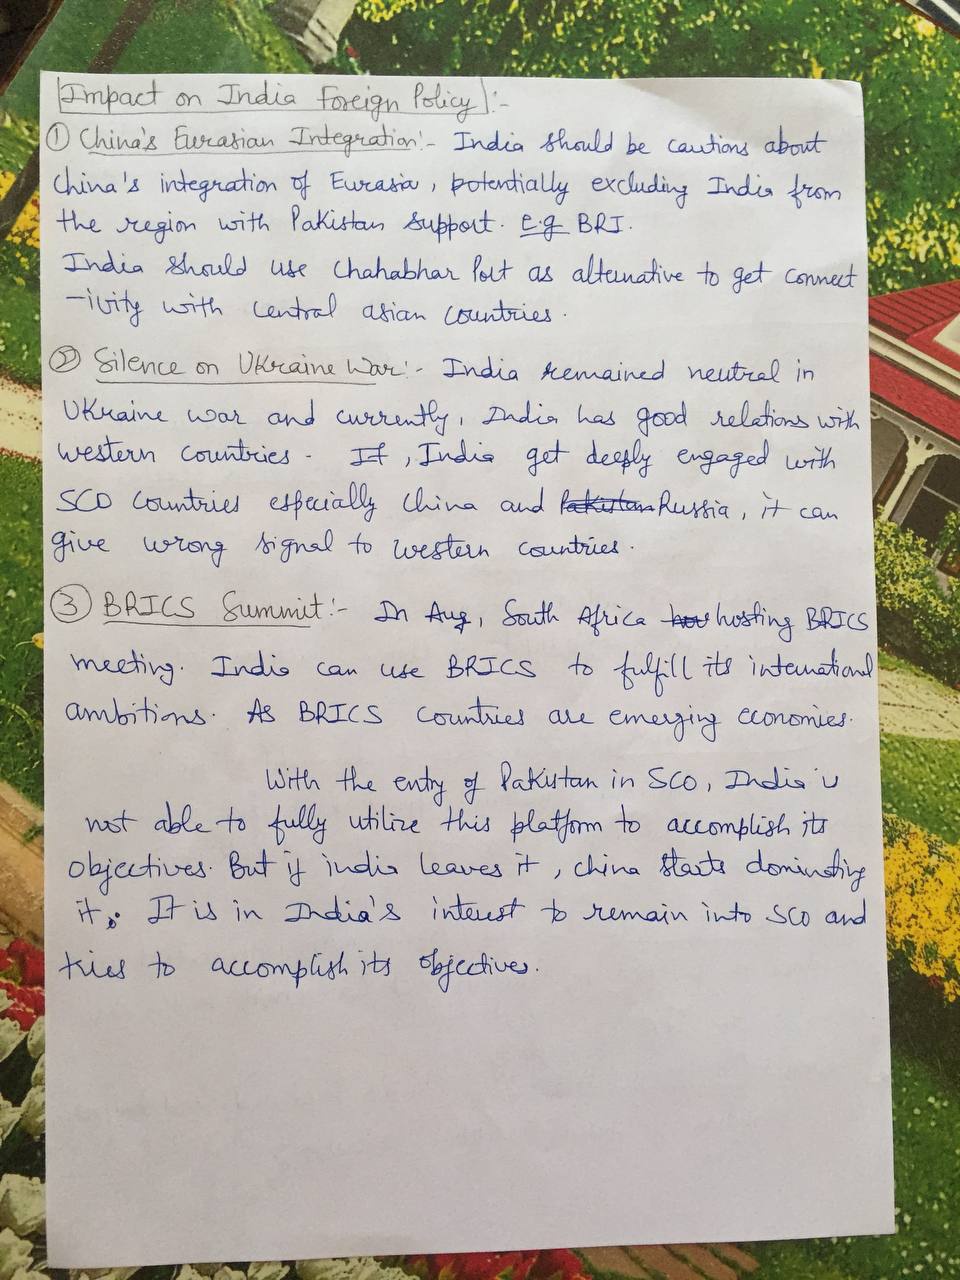 Impact on India Foreign Policy :-
① China's Eurasian Integration :- India should be cautions about
China's integration of Eurasia, potentially excluding India from
the region with Pakistan support. E.g BRI.
India should use Chahabhar Port as alternative to get connect
-ivity with central asian countries.
② Silence on Ukraine War :- India remained neutral in
Ukraine war and currently, India has good relations with
western countries. If, India get deeply engaged with
SCO countries especially China and Pakistan Russia, it can
give wrong signal to western countries.
③ BRICS Summit :- In Aug, South Africa hosting BRICS
meeting. India can use BRICS to fulfill its international
ambitions. As BRICS countries are emerging economies.
With the entry of Pakistan in SCO, India is
not able to fully utilize this platform to accomplish its
objectives. But if india leaves it, china starts dominating
it. It is in India's interest to remain into SCO and
tries to accomplish its objectives.